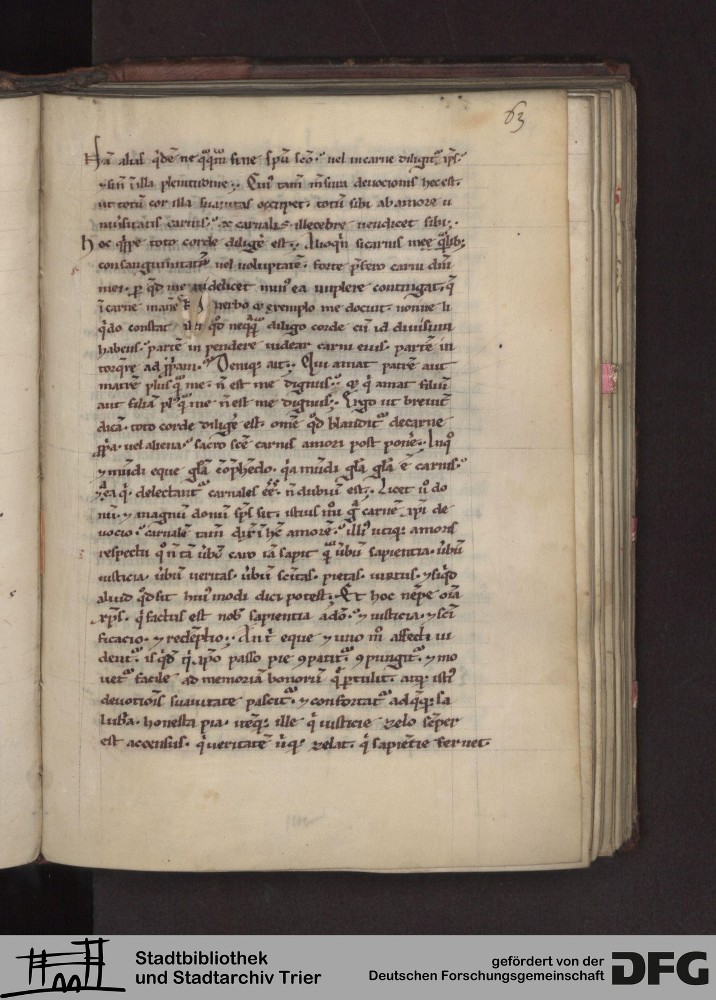 63
Nā alias qͥdē ne qͣqͣm sine spū scō. uel in carne diligit̄ xp̄s.
⁊ si n̄ ī illa plenitudine. Cuiꝰ tam̄ m̄sura deuocionis hec est.
ut totū cor illa suauitas occupet. totū sibi ab amore u
niuersitatis carnis. & carnalis illecebre uendicet sibi.
hoc qͥppe toto corde diligē est. Alioqͥn si carnis mee qͣlib;
consanguinitatē uel voluptatē. forte p̄fero carni dn̄i
mei. ꝑ qͣd me uidelicet minꝰ ea implere contingat. q̄
ī carne manēs uerbo & exemplo me docuit. nonne li
qͥdo constat qͦd neqͣqͣ diligo corde cū id diuisum
habens. partē inpendere uidear carni eius. partē in
torqͤre ad ꝓpriam. Deniqꝫ ait. Qui amat patrē aut
matrē plus qͣ me. n̄ est me dignus. & qͥ amat filiū
aut filiā plꝰ qͣ me n̄ est me dignus. Ergo ut breuit̄
dicā. toto corde dilige est. om̄e qͦd blandit̄ de carne
ꝓpria. uel aliena. sacro sc̄e carnis amori post pone. In qͦ
⁊ mūdi eque gl̄am cōp̄hendo. qͥa mūdi gl̄a gl̄a ē carnis.
⁊ ea qͥ delectant̄ carnales eē. n̄ dubiū est. Licet ū do
nū. ⁊ magnū donū sp̄s sit. istius m̊i gͣ carnē xp̄i de
uocio. carnalē tam̄ dix̄i hc̄ amorē. illiꝰ utiqꝫ amoris
respectu qͦ n̄ tā ūbū caro iā sapit qͣ ūbū sapientia. ūbū
iusticia. ūbū veritas. ūbū sc̄itas. pietas. uirtus. ⁊ siqͥd
aliud qͦd sit huiꝰmodi dici potest. Et hoc nēpe oīa
xp̄s. qͥ factus est nob̄ sapientia a dō. ⁊ iusticia. ⁊ sc̄i
ficacio. ⁊ redēptio. An t̄ eque ⁊ uno m̊ affecti ui
dent̄. is qͥdē qͥ xp̄o passo pie ꝯpatit̄. ꝯpungit̄. ⁊ mo
uet̄ facile ad memoriā bonorū qͤ ꝑtulit. atqꝫ istiꝰ
deuotiois suauitate pascit̄. ⁊ confortat̄ ad qͣqꝫ sa
lubͥa. honesta pia. itēqꝫ ille qͥ iusticie zelo sēper
est accensus. qͥ ueritatē ūqꝫ zelat. qͥ sapientie feruet
Stadtbibliothek
und Stadtarchiv Trier
gefördert von der
Deutschen Forschungsgemeinschaft
DFG